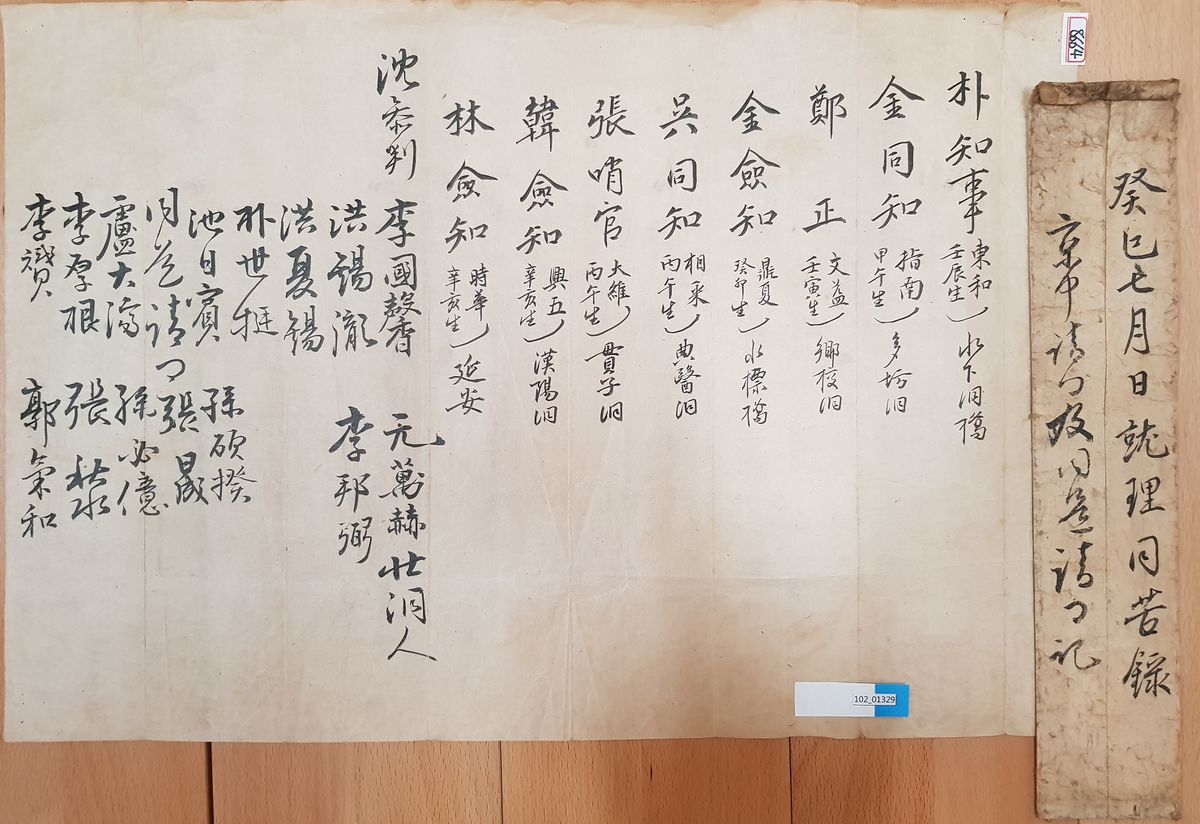 癸巳七月日就理同苦錄
京中請了及同道請了記
8664
朴知事 東和 壬辰生 水下洞橋
金同知 指南 甲午生 多坊洞
鄭 正 文益 壬寅生 鄕校洞
金僉知 鼎夏 癸卯生 水標橋
吳同知 相采 丙午生 典醫洞
張哨官 大維 丙午生 貫子洞
韓僉知 興五 辛亥生 漢陽洞
林僉知 時華 辛亥生 延安
沈參判 李國馨 元萬赫 壯洞人
洪錫 李邦弼
洪夏錫
朴世挺
池日賓 孫碩揆
同道請了 張晟
盧大濟 孫必億
李厚根 張
李 郭氣和
102_01329